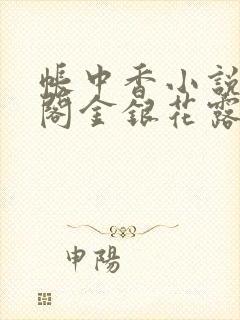 帐中香小說
閣金銀花露
申陽